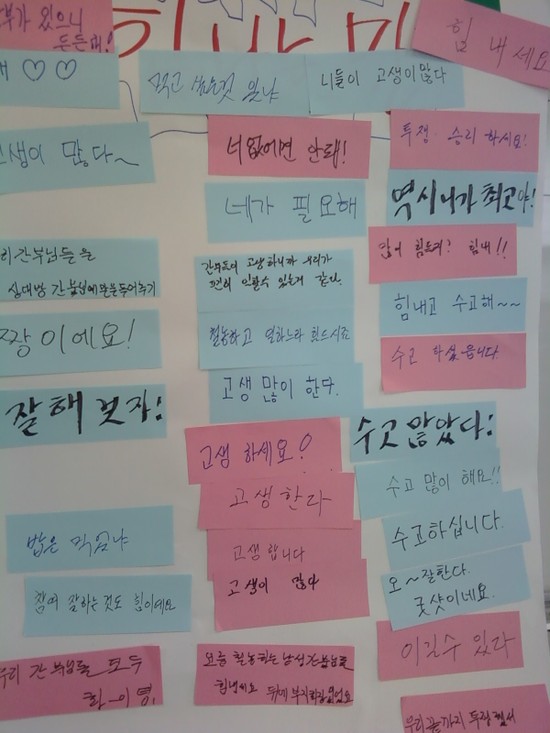 부가 있으니
든든해!
힘 내세요
♡♡
먹고 싶은것 있냐
니들이 고생이 많다
투쟁 승리 하세요!
고생이 많다~
너 없으면 안돼!
네가 필요해
역시 니가 최고야!
많이 힘드지? 힘내!!
간부님들을
상대방 간부님에
간부들이 고생하니까 우리가
편히 일할수 있는거 같다.
힘내고 수고해~~
짱이에요!
활동하고 일하느라 힘드시죠
수고 하셨습니다.
고생 많이 한다.
잘해 보자!
수고 많았다!
고생 하세요!
수고 많이 해요!!
고생한다
수고하십니다.
밥은 먹었냐
고생합니다
고생이 많다
참여 잘하는것도 힘이에요
오~잘한다.
굿샷이네요.
이길수 있다
우리 간부님들 모두
화이팅.
요즘 활동하는 남성간부님들
힘내세요
우리끝까지 투쟁